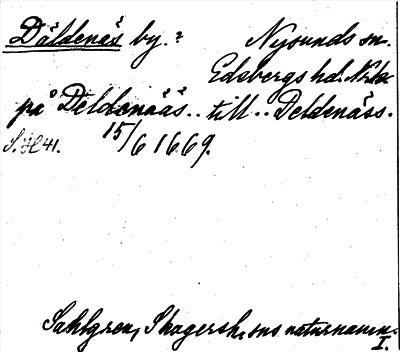 Däldenäs by.? Nysunds sn.
Edsbergs hd. Nrke
på Deldenääs.. till.. Deldenäss.
S. H 41. 15/6 1669.
Sahlgren, Skagersh. sns naturnamn.
I.